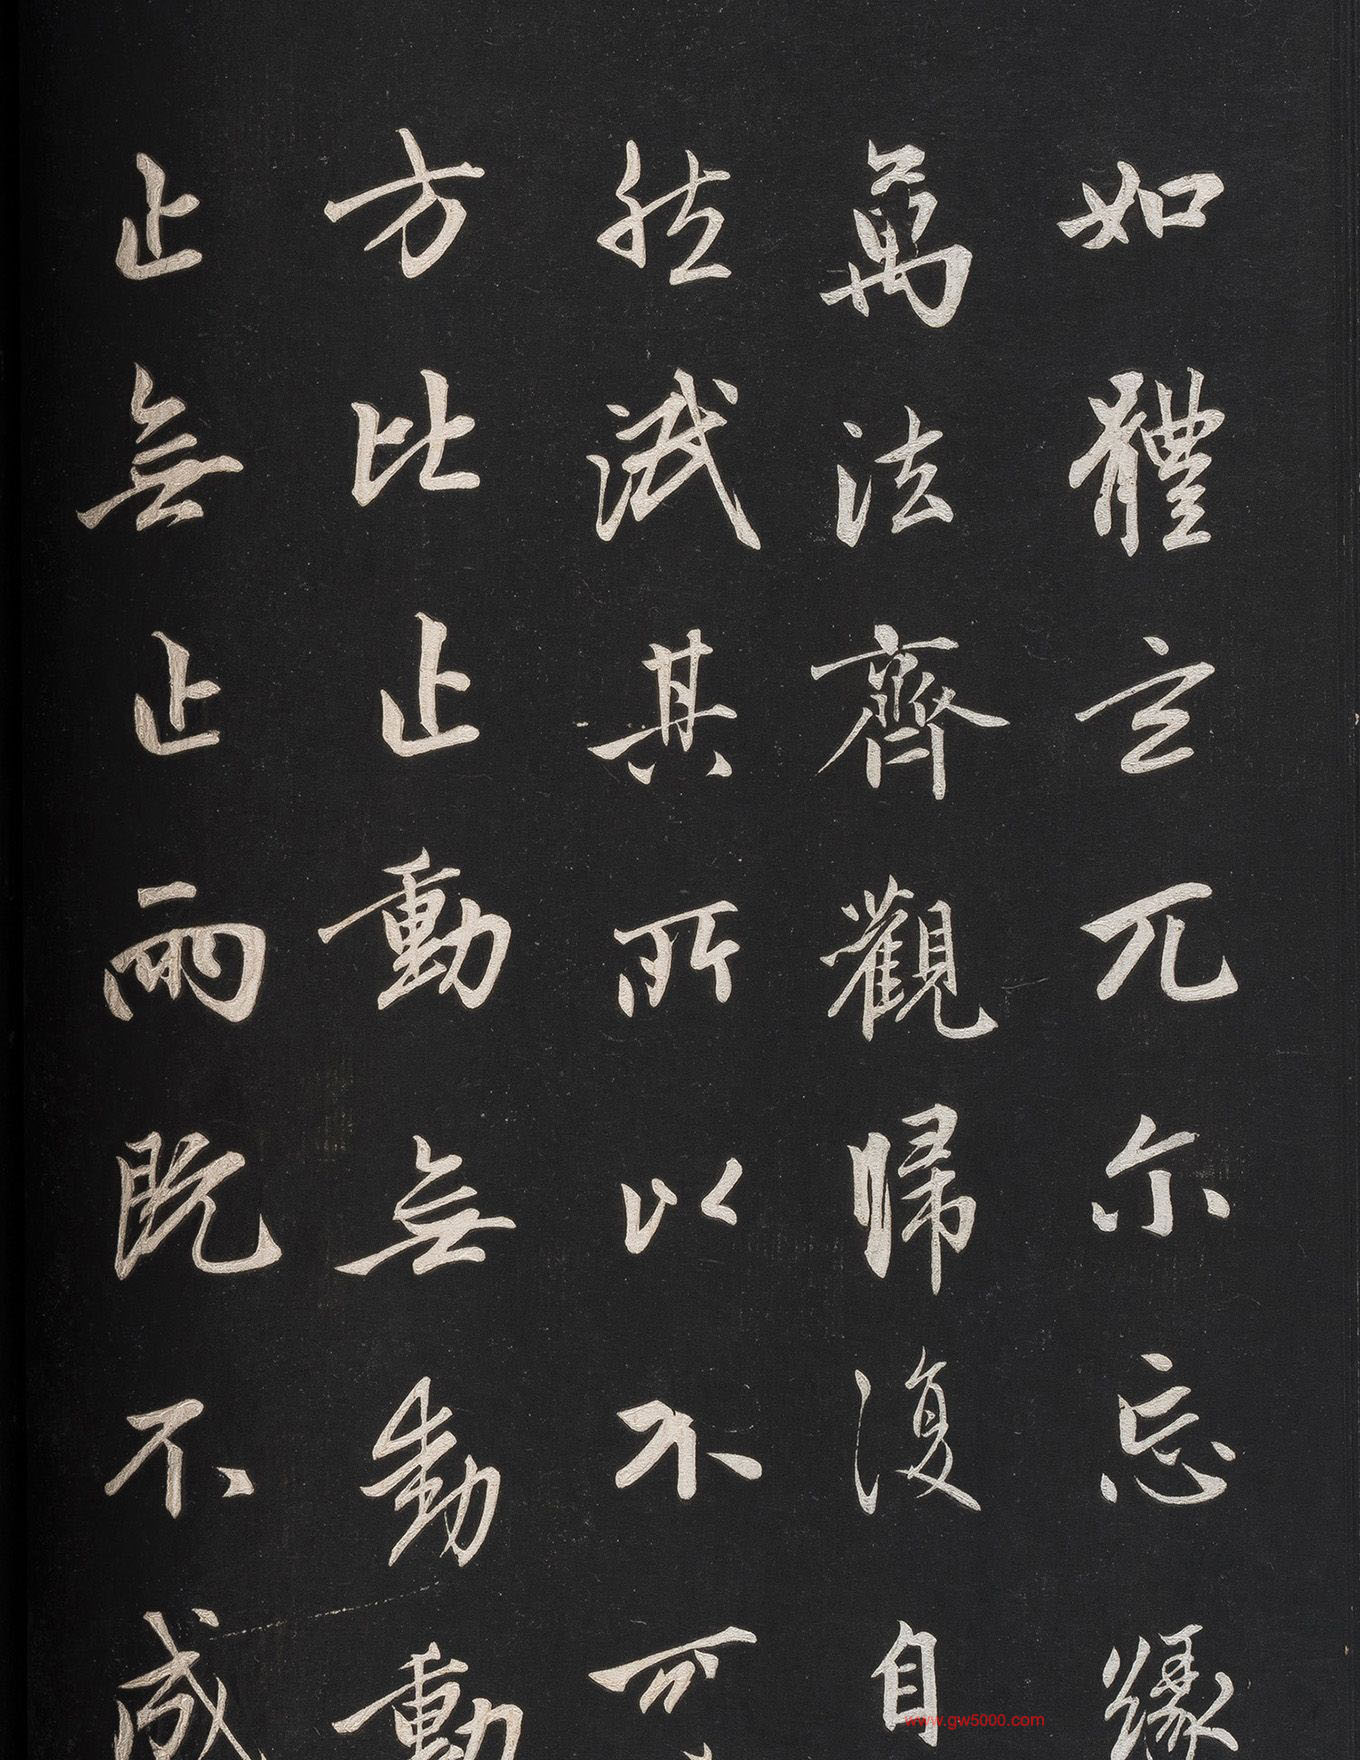 如體玄兀尔忘緣
萬法齊觀歸復自
然泯其所以不可
方比止動無動動
止無止兩既不成
www.gw5000.com